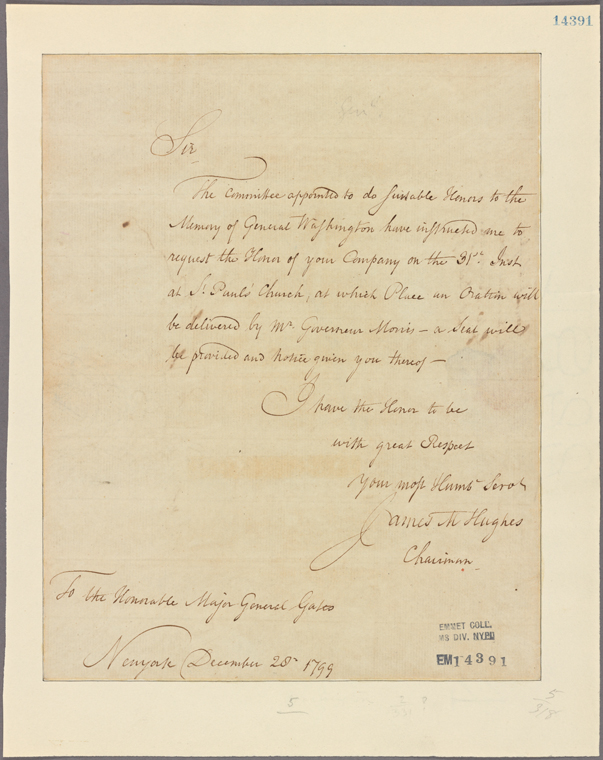 14391
Sir
The Committee appointed to do suitable Honors to the
Memory of General Washington have instructed me to
request the Honor of your Company on the 31st. Inst
at St. Pauls Church, at which Place an Oration will
be delivered by Mr. Governeur Morris – a Seat will
be provided and notice given you thereof –
I have the Honor to be
with great Respect
Your most Humb Servt
James M Hughes
Chairman
To the Honorable Major General Gates
Newyork December 28th 1799
EMMET COLL.
MS DIV. NYPD
EM14391
5
5